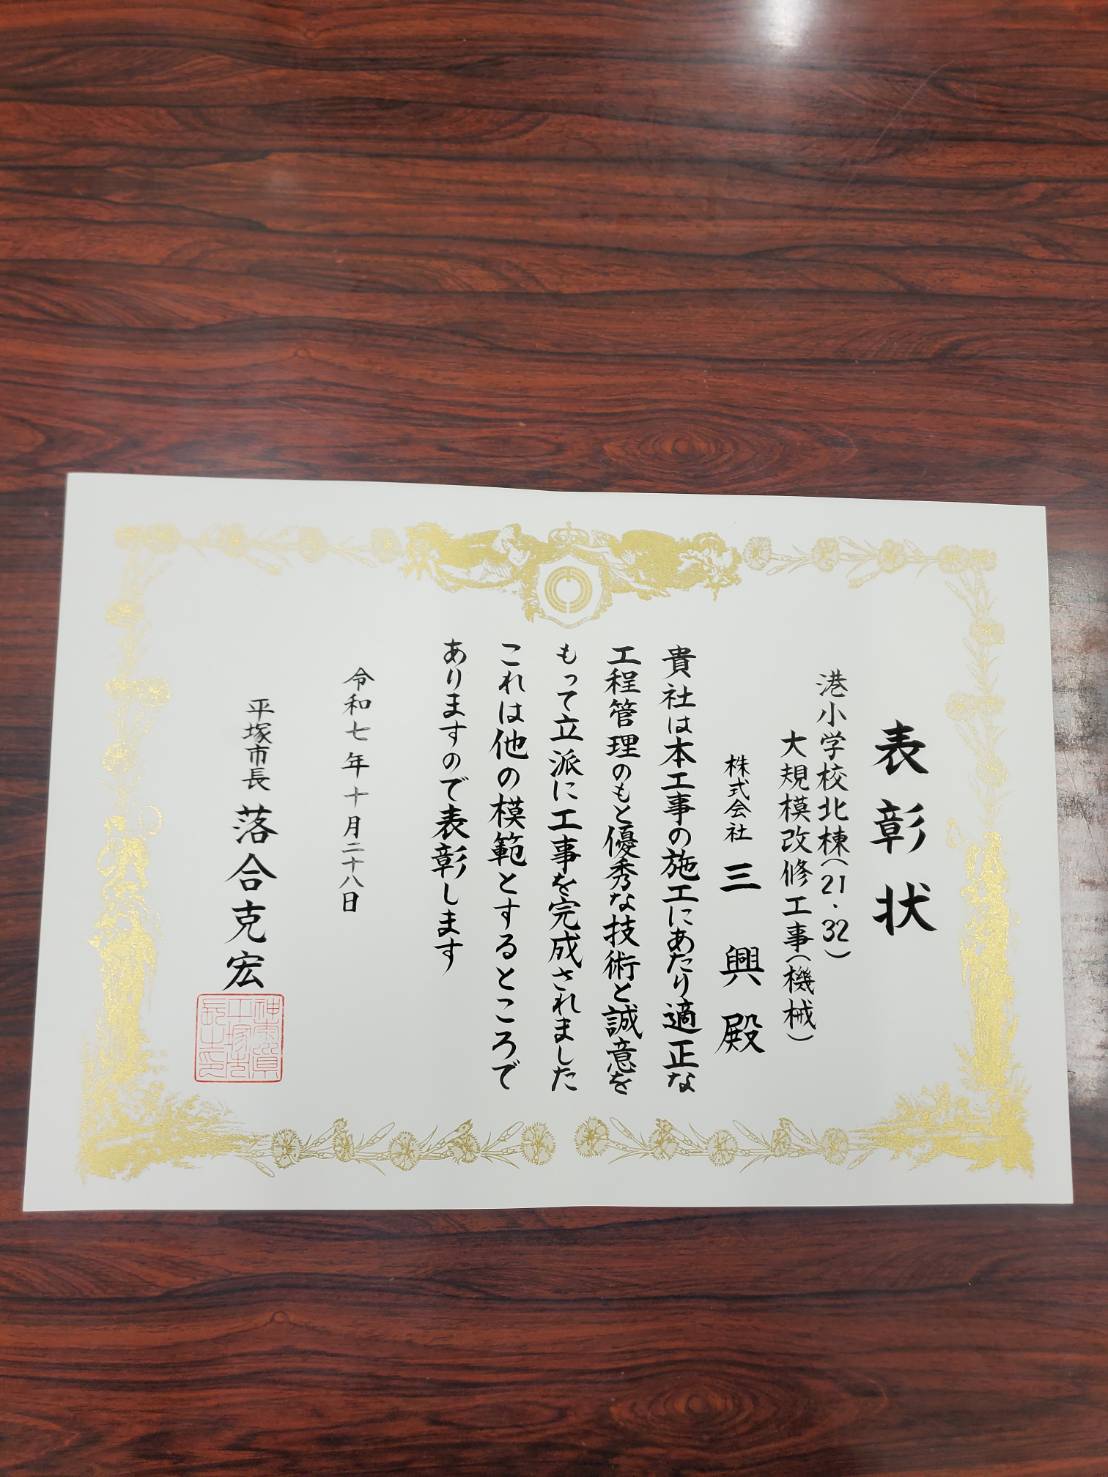 表彰状
港小学校北棟(21・32)
大規模改修工事(機械)
株式会社 三興殿
貴社は本工事の施工にあたり適正な
工程管理のもと優秀な技術と誠意を
もって立派に工事を完成されました
これは他の模範とするところで
ありますので表彰します
令和七年十月二十八日
平塚市長 落合克宏